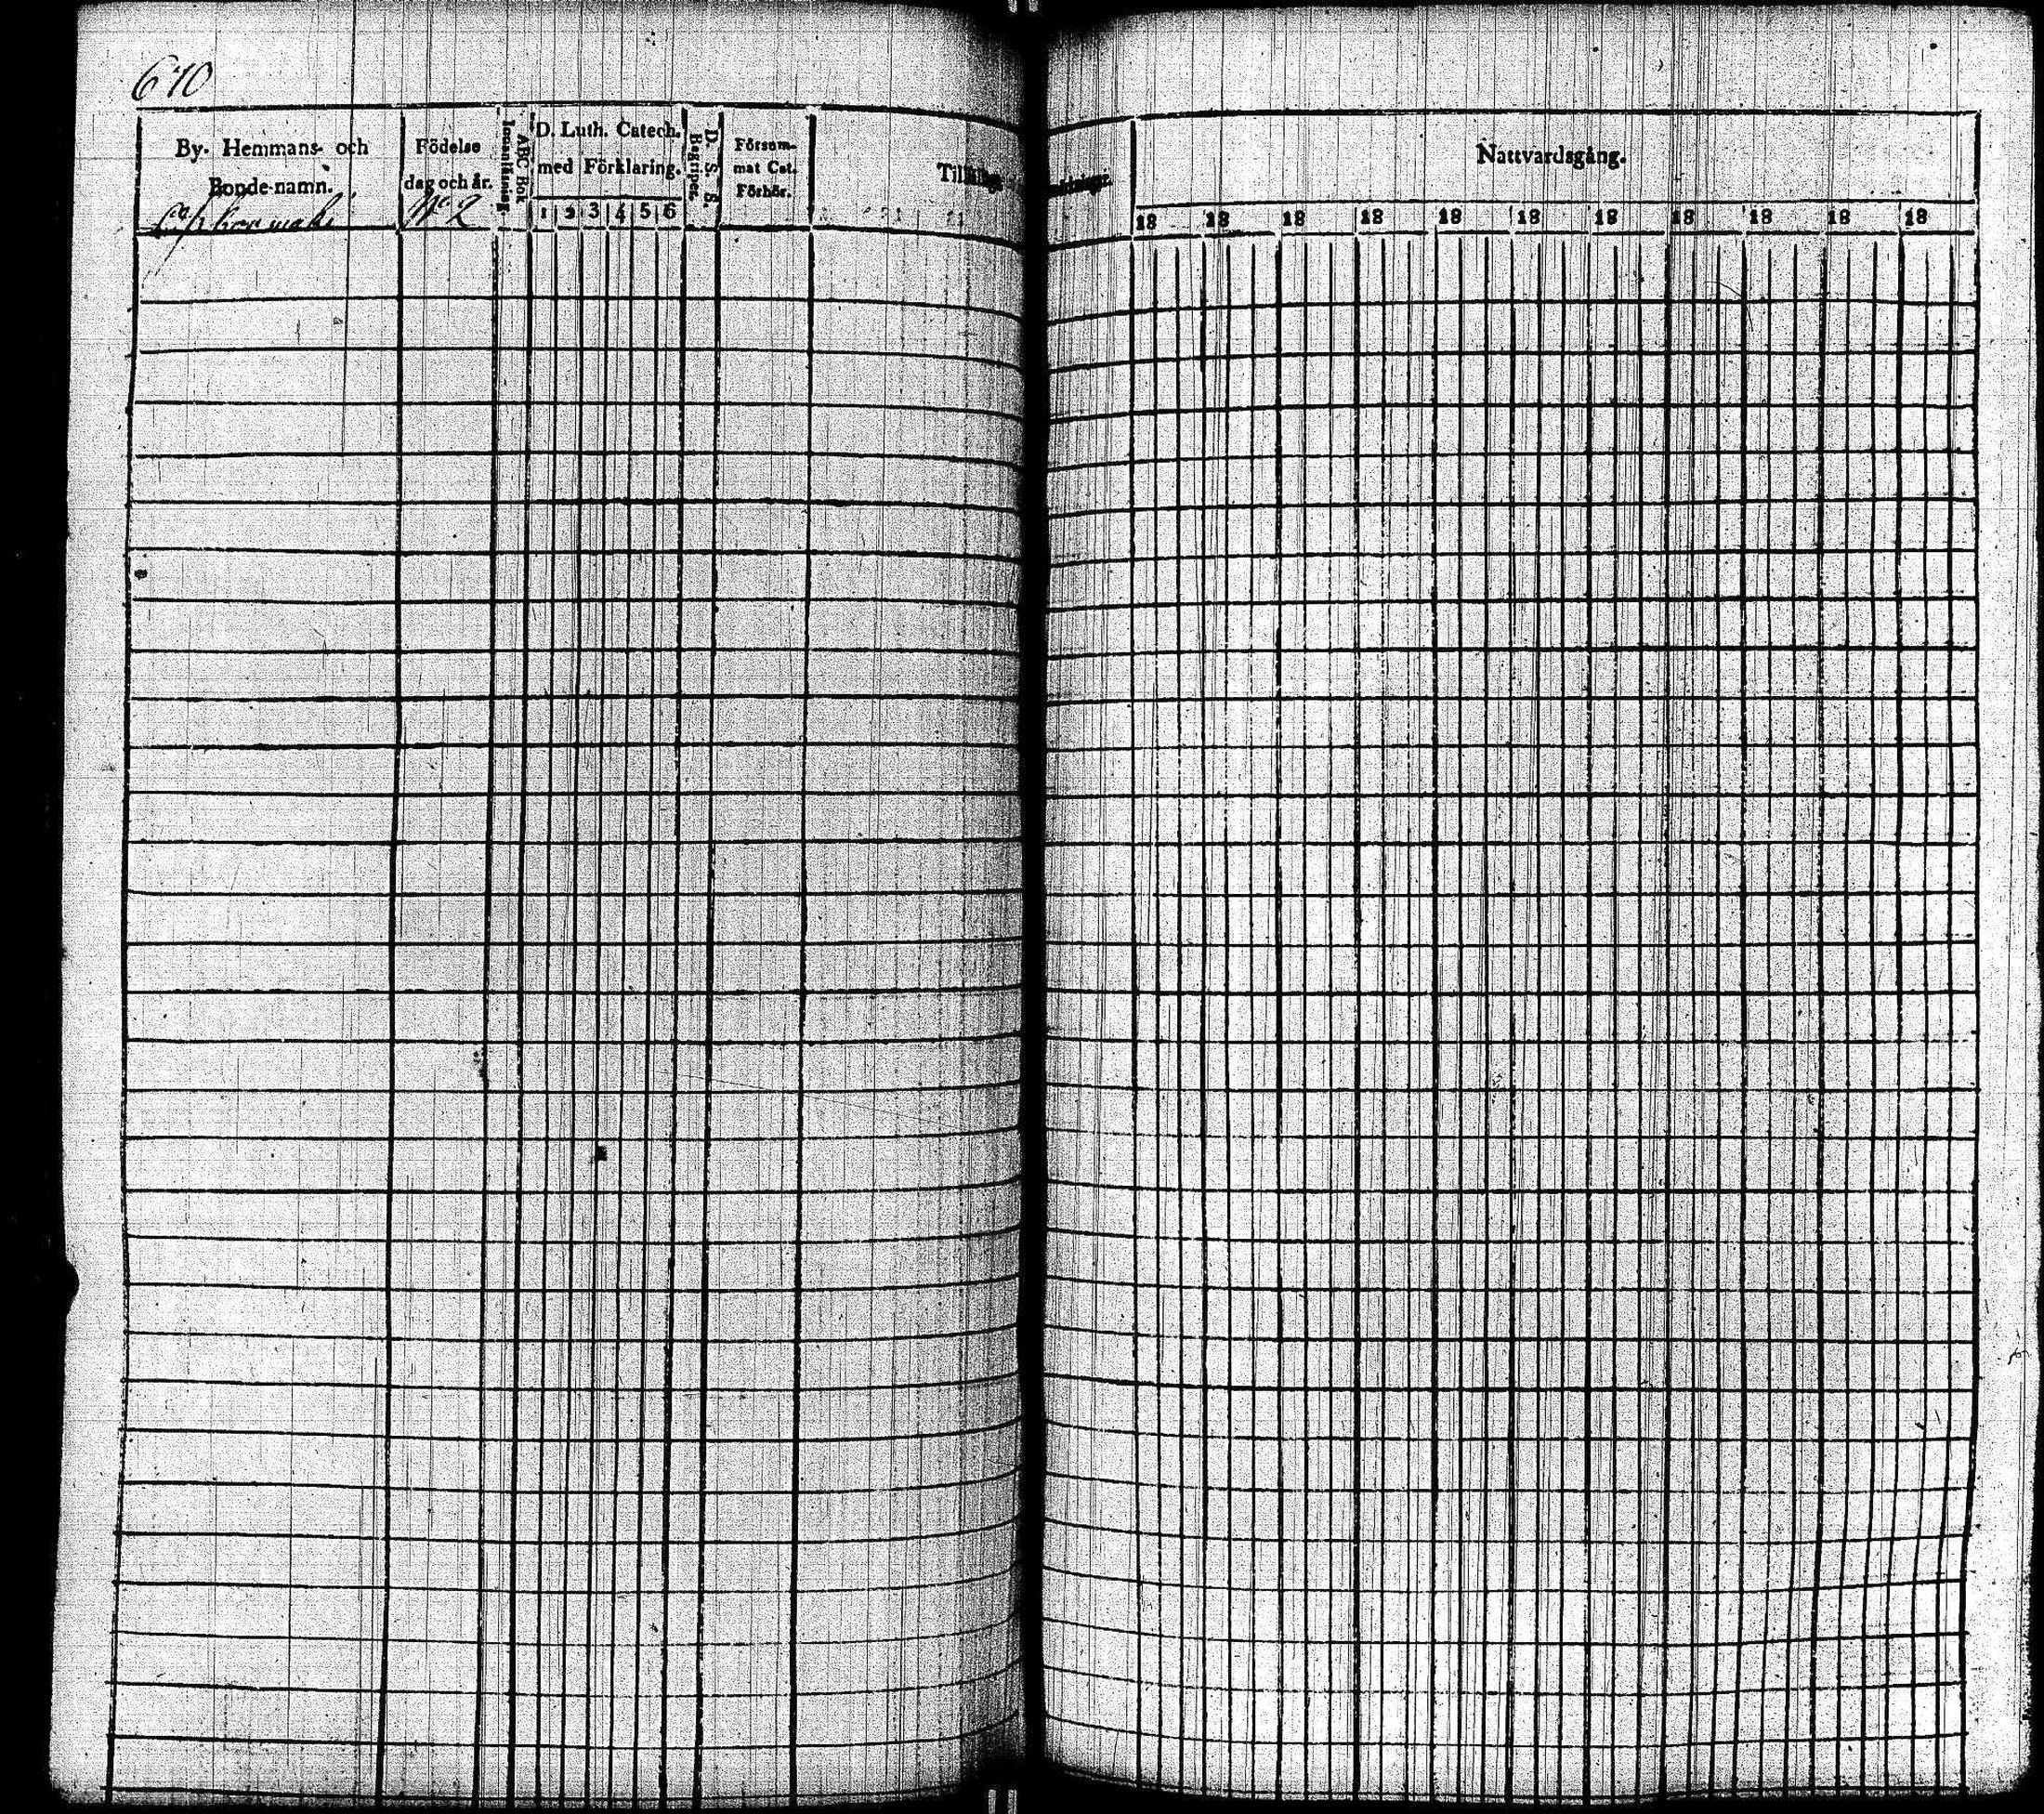 670
By. Hemmans- och
Bonde-namn.
Födelse
dag och år.
No 2
ABC Bok
Innanläsning.
D. Luth. Catech.
med Förklaring.
1 2 3 4 5 6
D. S. B.
Begriper.
Försum-
mat Cat.
Förhör.
Nattvardsgång.
18 18 18 18 18 18 18 18 18 18 18